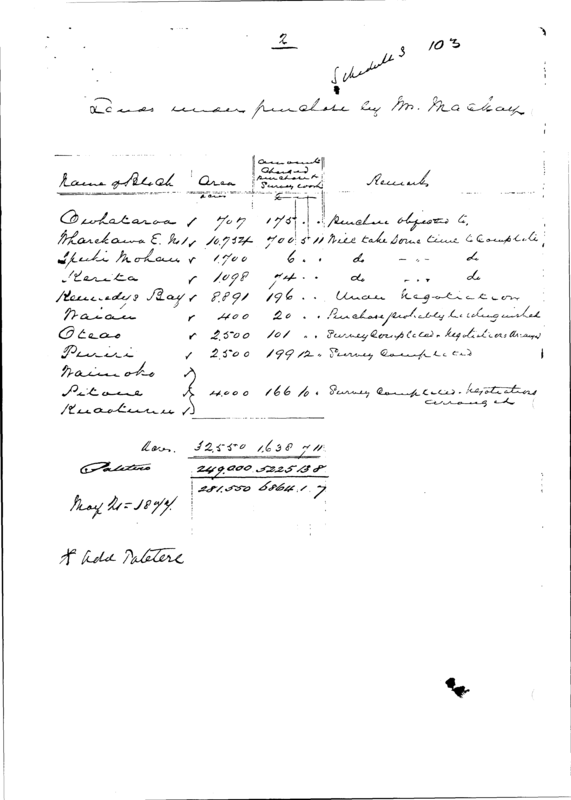 2
Schedule 3 103
Lands under purchase by Mr. Mackay
Name of Block Area Amounts Charged Purchase & Survey Cost Remarks
acres £
Owhataroa 707 175 . . Purchase objected to,
Wharekawa E. No 1 10,754 700 5 11 Will take some time to complete
Mohau 1,700 6 . . do - .. - do
Kerita 1098 74 . . do ... do
Kennedys Bay 8,891 196 . . Under Negotiation
Waiau 400 20 . . Purchase probably
Oteao 2,500 101 . . Survey Completed. Negotiations
Puriri 2,500 199 12 . Survey Completed
Waimoko
Pitone 4,000 166 10 . Survey Completed. Negotiations
Kuaotunu arranged
Acres. 32,550 1,638 7 11
Patetere 249,000 5225 13 8
281,550 6864 . 1 . 7
May 21 = 18
* Add Patetere